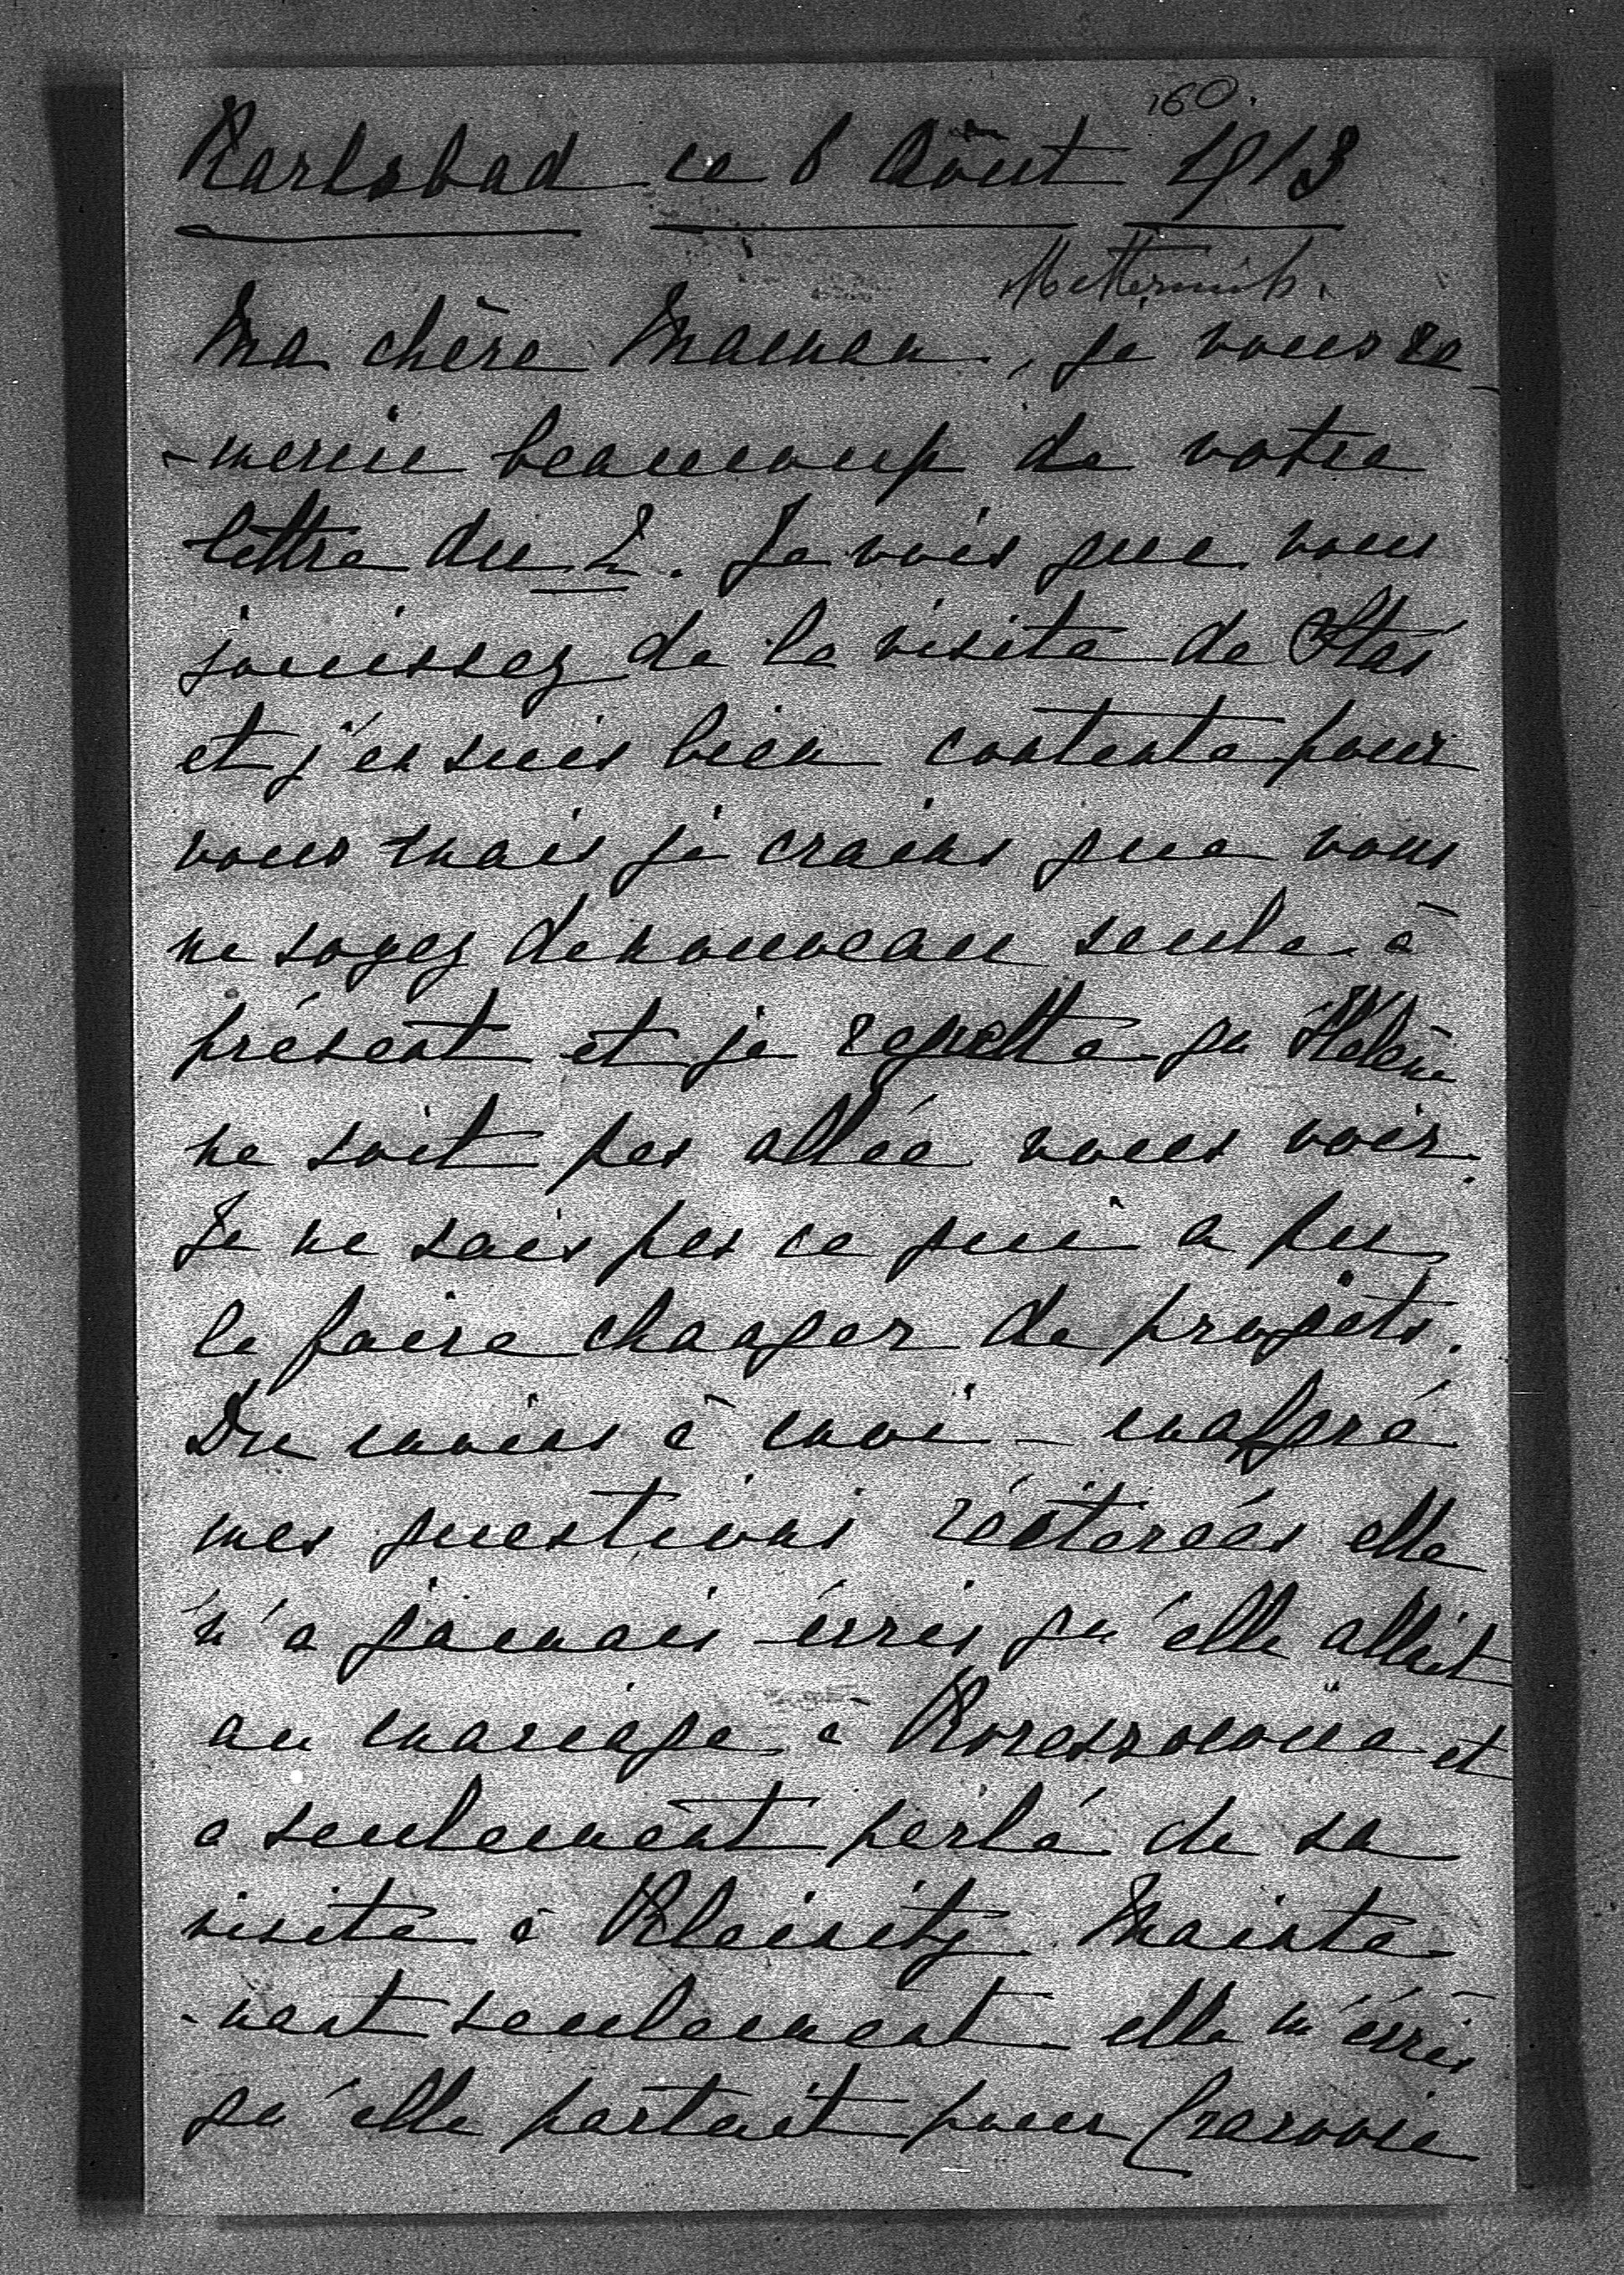 160.
Karlsbad ce 6 Août 1913
Ma chère Maman, je vous re-
-mercie beaucoup de votre
lettre du 2. Je vois que vous
jouissez de la visite de Staś
et j'en suis bien contente pour
vous mais je crains que vous
ne soyez de nouveau seule à
présent et je regrette qu'Hélène
ne soit pas allée vous voir.
Je ne sais pas ce qui a pu
la faire changer de projets.
Du moins à moi – malgré
mes questions réitérées elle
n'a jamais écris qu'elle allait
au mariage à et
a seulement parlé de sa
visite à Kleinitz. Mainte-
-nant seulement elle m'écris
qu'elle partait pour Cracovie